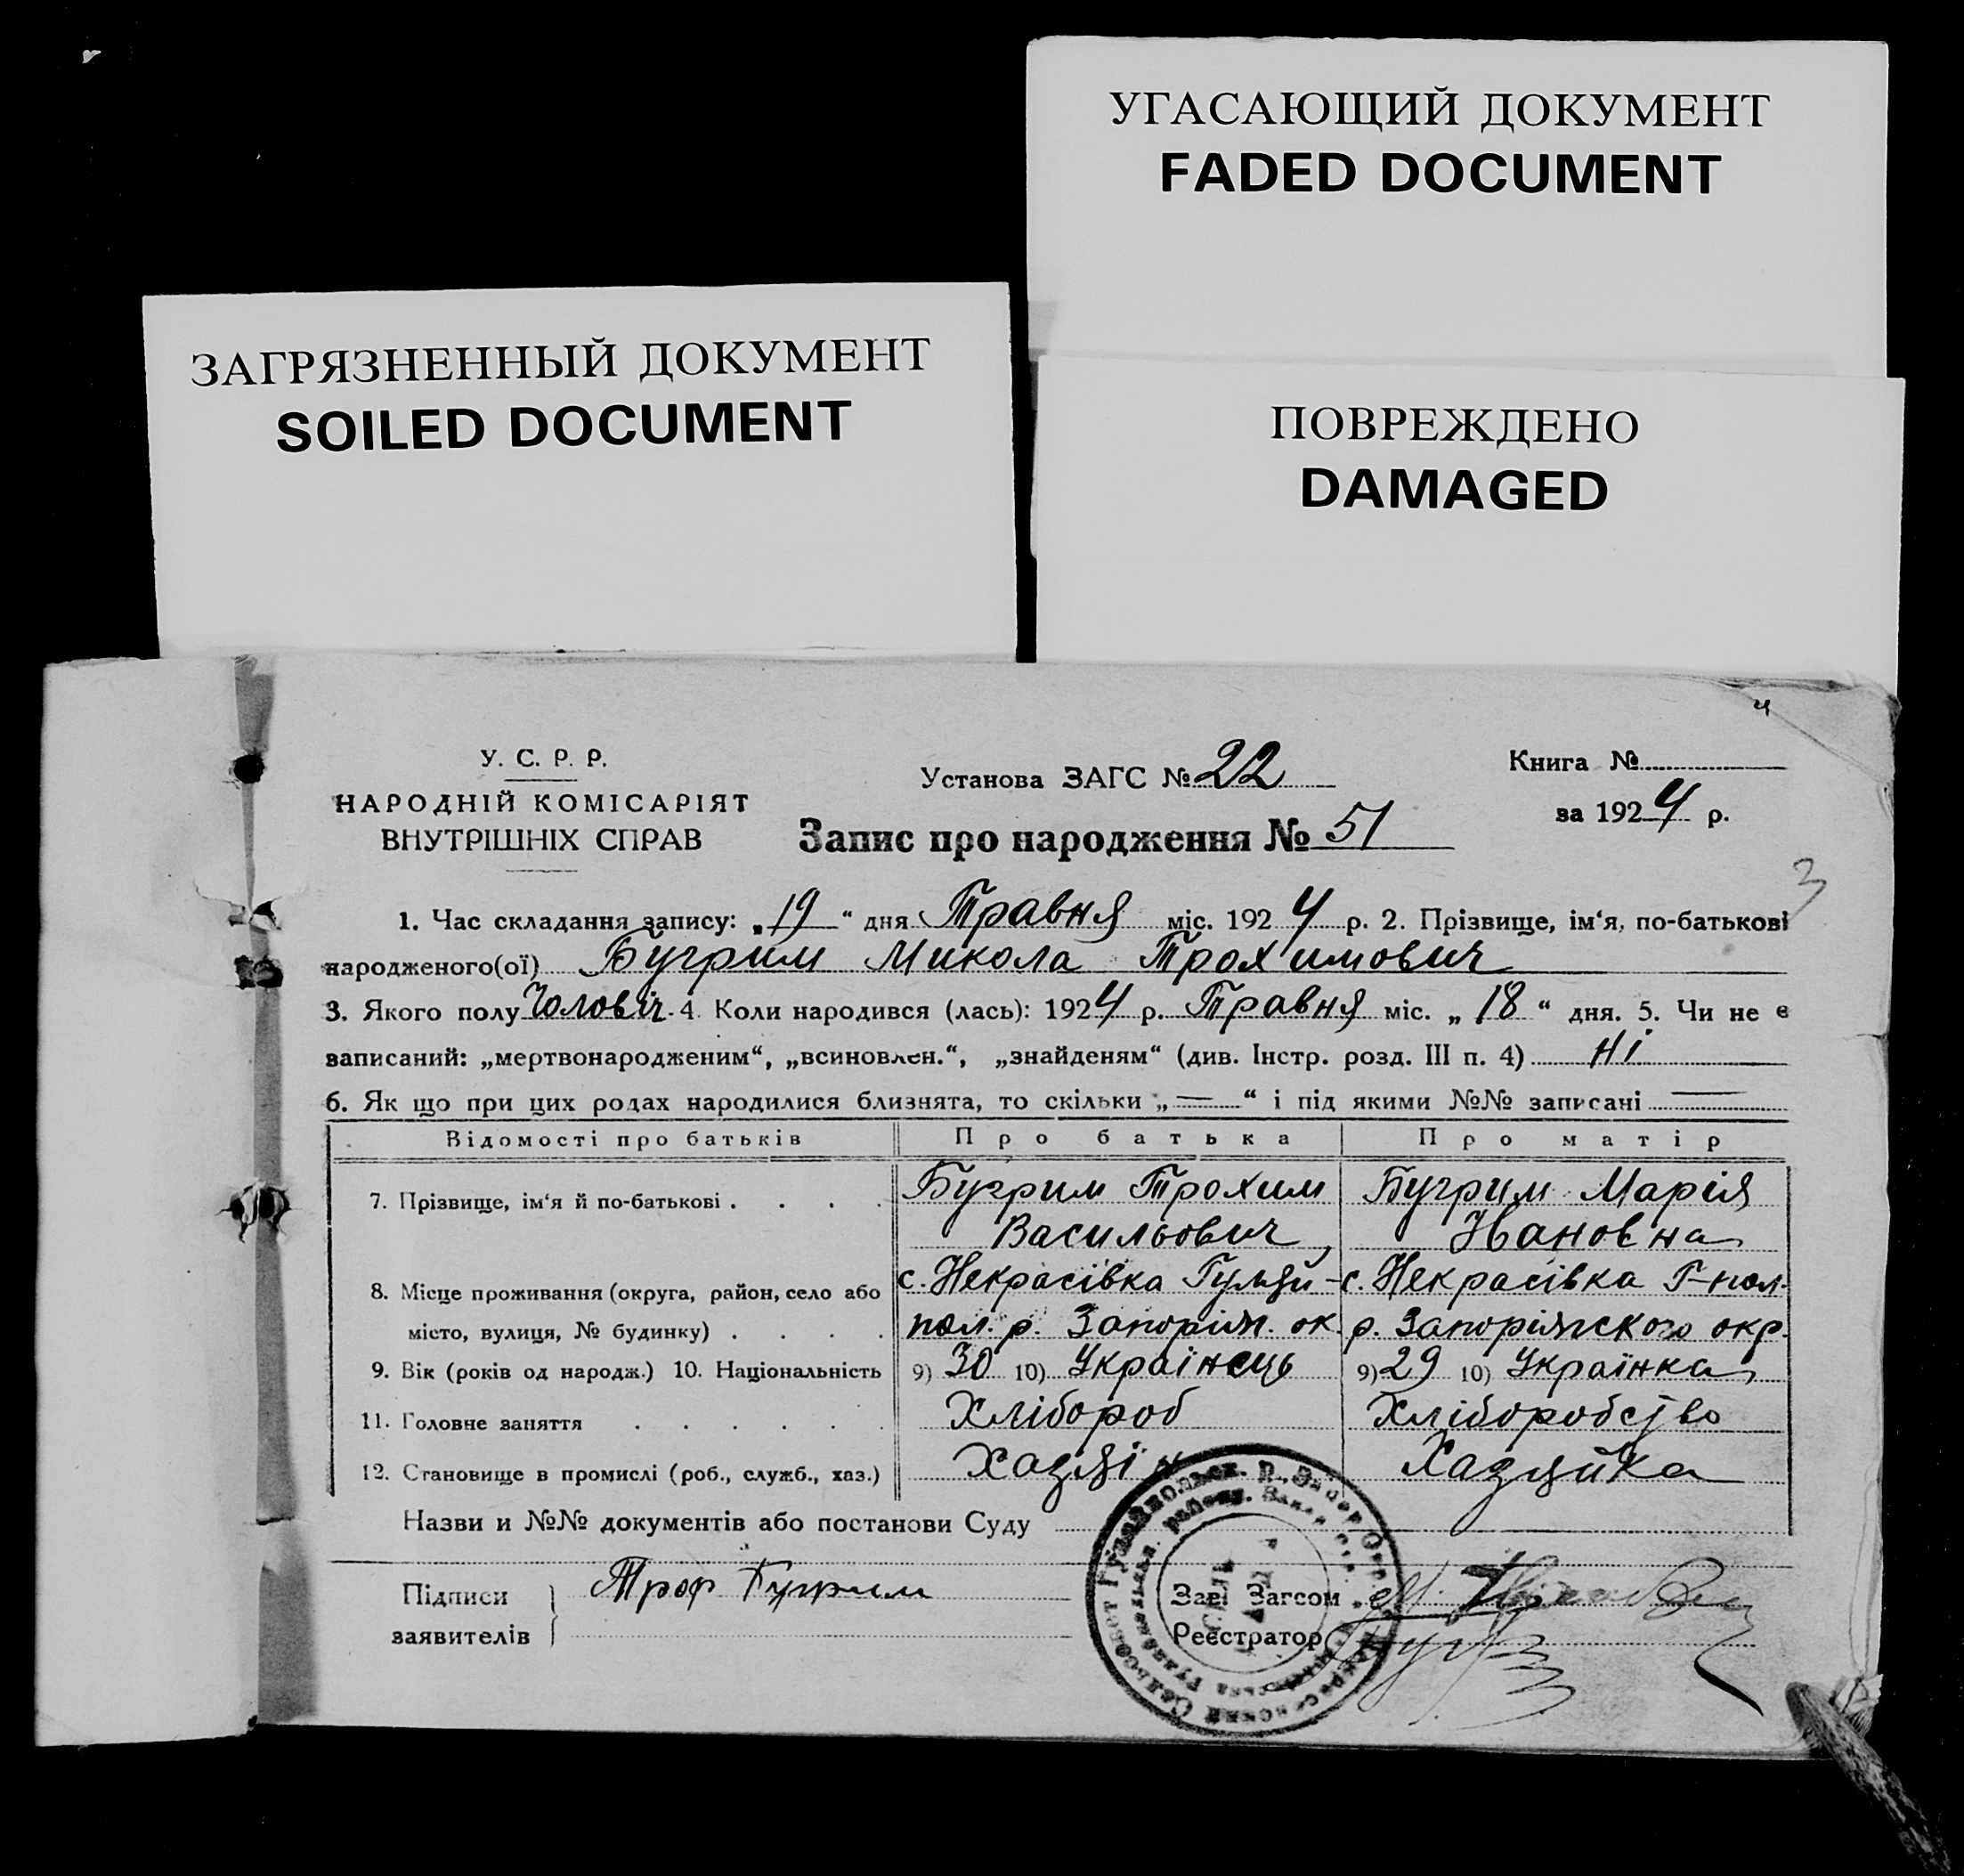 УГАСАЮЩИЙ ДОКУМЕНТ
FADED DOCUMENT
ЗАГРЯЗНЕННЫЙ ДОКУМЕНТ
SOILED DOCUMENT
ПОВРЕЖДЕНО
DAMAGED
4
У. С. Р. Р.
НАРОДНІЙ КОМІСАРІЯТ
ВНУТРІШНІХ СПРАВ
Установа ЗАГС № 22
Запис про народження № 51
Книга №
за 1924 р.
3
1. Час складання запису: „19“ дня Травня міс. 1924 р. 2. Прізвище, ім‘я, по-батькові
народженого(ої) Бугрим Микола Трохимович
3. Якого полу Чоловіч. 4. Коли народився (лась): 1924 р. Травня міс. „18“ дня. 5. Чи не є
записаний: „мертвонародженим“, „всиновлен.“, „знайденям“ (див. Інстр. розд. III п. 4) Ні
6. Як що при цих родах народилися близнята, то скільки „—“ і під якими №№ записані —
Відомості про батьків Про батька Про матір
7. Прізвище, ім‘я й по-батькові . . . . Бугрим Трохим Бугрим Марія
Васильович, Ивановна
8. Місце проживання (округа, район, село або с. Некрасівка Гуляй- с. Некрасівка Г-пол.
місто, вулиця, № будинку) . . . . пол. р. Запоріж. ок. р. Запоріжского окр.
9. Вік (років од народж.) 10. Національність 9) 30 10) Українець 9) 29 10) Українка
11. Головне заняття . . . . . . Хлібороб Хліборобство
12. Становище в промислі (роб., служб., хаз.) Хазяїн Хазяйка
Назви и №№ документів або постанови Суду
Підписи
заявителів
Троф Бугрим
Зав. Загсом
Реєстратор